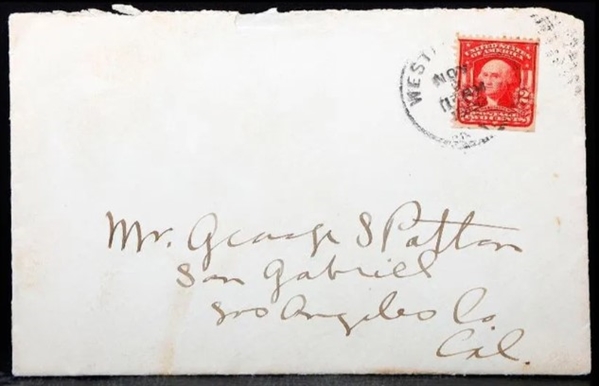 WEST
NOV
UNITED STATES
OF AMERICA
2
TWO CENTS
Mr. George S Patton
San Gabriel
Los Angeles Co.
Cal.